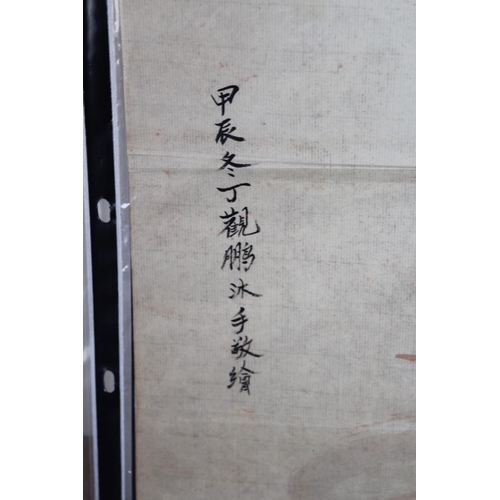 甲辰冬丁觀鵬沐手敬繪